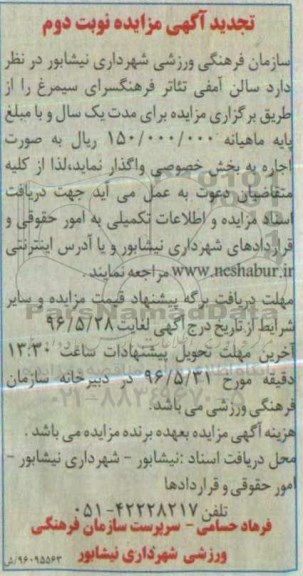 تجدید آگهی مزایده نوبت دوم
سازمان فرهنگی ورزشی شهرداری نیشابور در نظر
دارد سالن آمفی تئاتر فرهنگسرای سیمرغ را از
طریق برگزاری مزایده برای مدت یک سال و با مبلغ
پایه ماهیانه ۱۵۰/۰۰۰/۰۰۰ ریال به صورت
اجاره به بخش خصوصی واگذار نماید،لذا از کلیه
متقاضیان دعوت به عمل می آید جهت دریافت
اسناد مزایده و اطلاعات تکمیلی به امور حقوقی و
قراردادهای شهرداری نیشابور و یا آدرس اینترنتی
www.neshabur.ir مراجعه نمایند.
مهلت دریافت برگه پیشنهاد قیمت مزایده و سایر
شرایط از تاریخ درج آگهی لغایت ۹۶/۵/۲۸
آخرین مهلت تحویل پیشنهادات ساعت ۱۳:۳۰
دقیقه مورخ ۹۶/۵/۳۱ در دبیرخانه سازمان
فرهنگی ورزشی می باشد.
هزینه آگهی مزایده بعهده برنده مزایده می باشد .
محل دریافت اسناد :نیشابور - شهرداری نیشابور -
امور حقوقی و قراردادها
تلفن ۴۲۲۲۸۲۱۷-۰۵۱
فرهاد حسامی - سرپرست سازمان فرهنگی
ورزشی شهرداری نیشابور
۹۶۰۹۵۵۶۳/ش
ParsNamadData